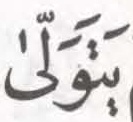 يَتَوَلّٰى